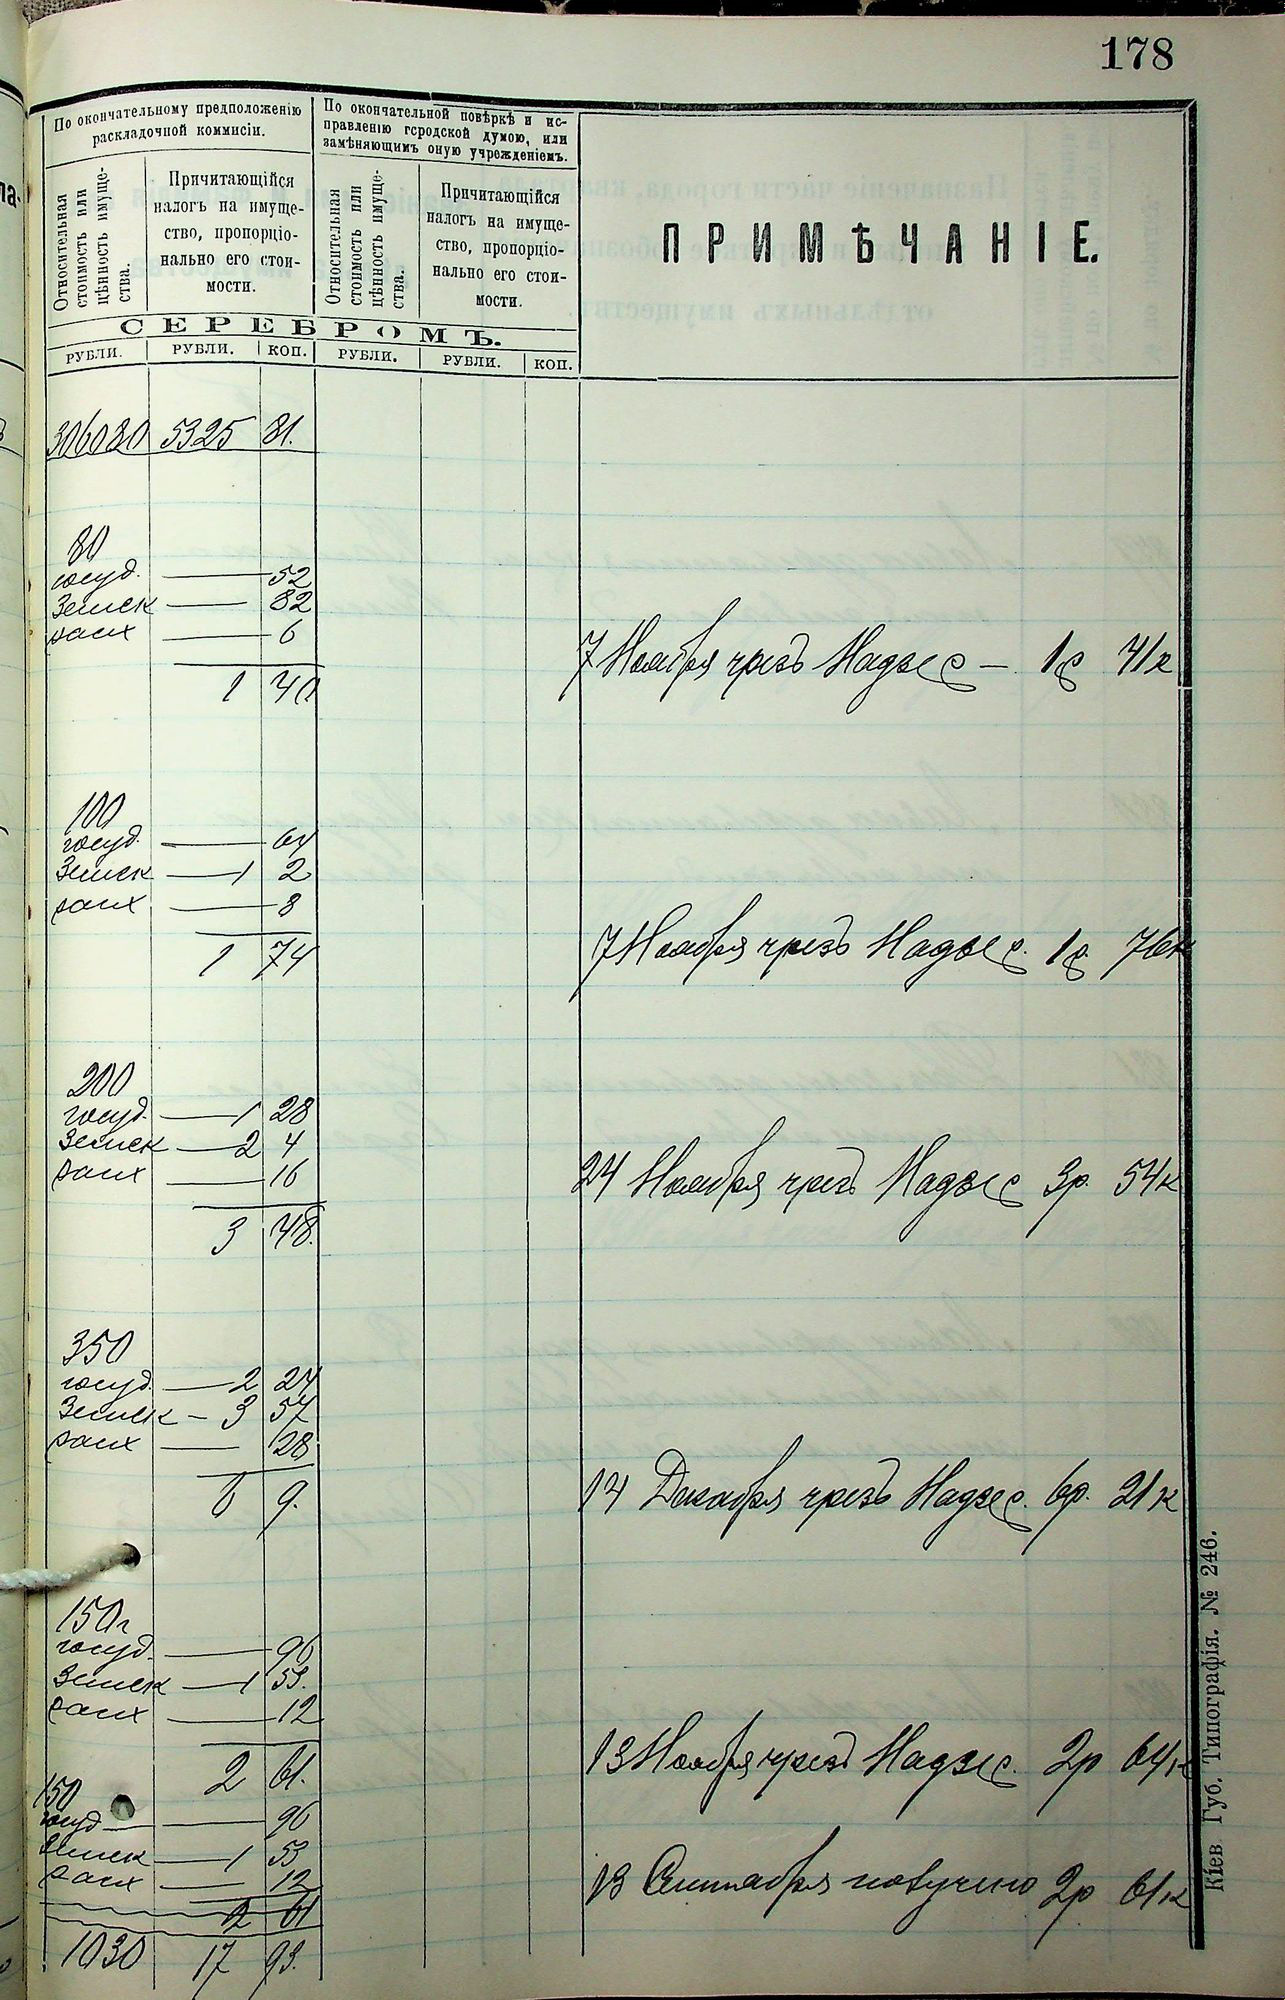 178
По окончательному предположенію
раскладочной коммисіи.
По окончательной повѣркѣ и ис-
правленію городской думою, или
замѣняющимъ оную учрежденіемъ.
Относительная
стоимость или
цѣнность имуще-
ства.
Причитающійся
налогъ на имуще-
ство, пропорціо-
нально его стои-
мости.
Относительная
стоимость или
цѣнность имуще-
ства.
Причитающійся
налогъ на имуще-
ство, пропорціо-
нально его стои-
мости.
ПРИМѢЧАНІЕ.
СЕРЕБРОМЪ.
РУБЛИ. РУБЛИ. КОП. РУБЛИ. РУБЛИ. КОП.
306080 5325 81.
80
госуд. — 52
Земск — 82
расх — 6
1 40
7 Ноября чрезъ Надзс — 1р 41к
100
госуд. — 64
Земск — 1 2
расх — 8
1 74
7 Ноября чрезъ Надзс. 1р. 76к
200
госуд. — 1 28
Земск — 2 4
расх — 16
3 48.
24 Ноября чрезъ Надзс 3р. 54к
350
госуд — 2 24
Земск — 3 57
расх — 28
6 9.
14 Декабря чрезъ Надзс. 6р. 21к
150
госуд. — 96
Земск — 1 53.
расх — 12
2 61.
13 Ноября чрезъ Надзс. 2р 64к
150
госуд — 96
Земск — 1 53
расх — 12
2 61
13 Сентября получено 2р 61к
1030 17 93.
Кіев Губ. Типографія. № 246.